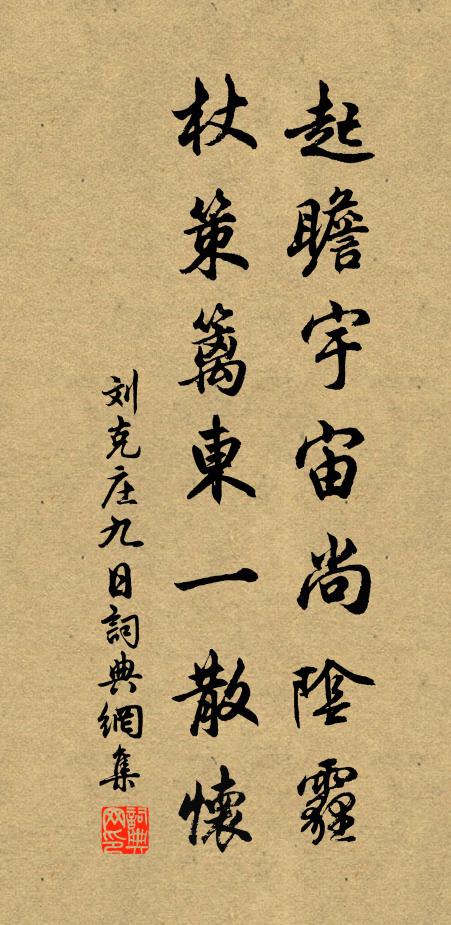 起瞻宇宙尚陰霾
杖策籬東一散懷
刘克庄九日詞典網集
詞典网印